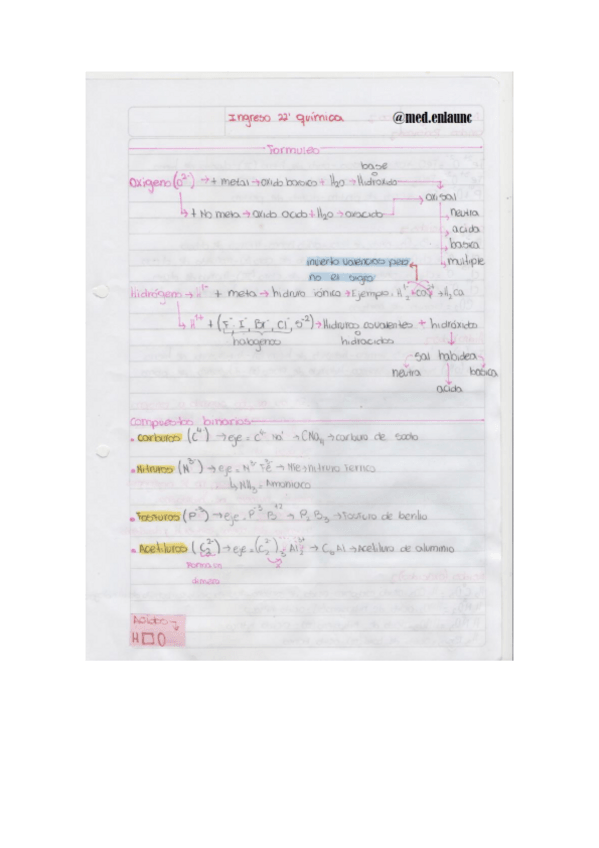 Ingreso 22' química
@med.enlaunc
Formuleo
base
o
Oxígeno (O²⁻) → + metal → oxido basico + H₂O → Hidróxido
oxisal
↳ + No metal → oxido acido + H₂O → oxacido
neutra
acida
basica
multiple
invierto valencias pero
no el signo
Hidrógeno → H¹⁻ + metal → hidruro iónico → Ejemplo: H
↳ H¹⁺ + (F⁻, I⁻, Br⁻, Cl⁻, S⁻²) → Hidruros covalentes + hidróxido
halogenos
o
hidracidos
sal
neutra
basica
acida
Compuestos binarios
• Carburos (C⁴) → eje = C⁴ Na¹ → CNa₄ → carburo de sodio
• Nitruros (N³) → eje = N³ Fe³ → → Nitruro ferrico
↳ NH₃ = Amoniaco
• Fosfuros (P⁻³) → eje = P⁻³ B⁺² → P₂ B₃ → Fosfuro de berilio
• Acetiluros (C₂²⁻) → eje = (C₂²⁻)₃ Al₂³⁺ → C₆ Al → Acetiluro de aluminio
Acidos →
H □ O